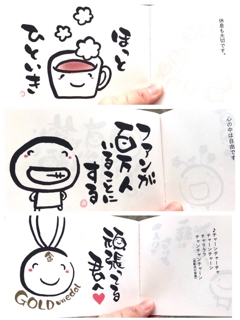 ほっと
ひといき
休息も大切です。
ファンが
百万人
いることに
する
心の中は自由です。
頑張ってる
君へ♥
GOLD medal
♪チャーンチャーチャ
チャーンチャーン
チャララララ
チャンチャンチャーン